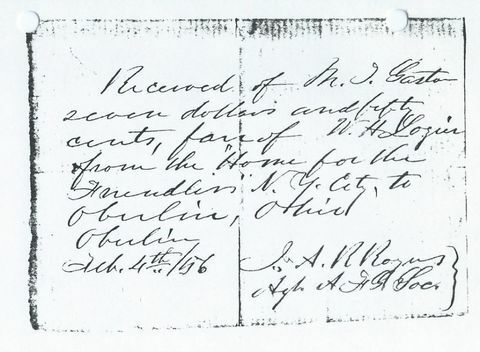 Received of M. J. Gaston
seven dollars and fifty
cents, fare of W. H. Lozier
from the "Home for the
Friendless" N. Y. City, to
Oberlin, Ohio
Oberlin
Feb. 4th /56
J. A. R. Rogers
Agt A. F. G. Soc.